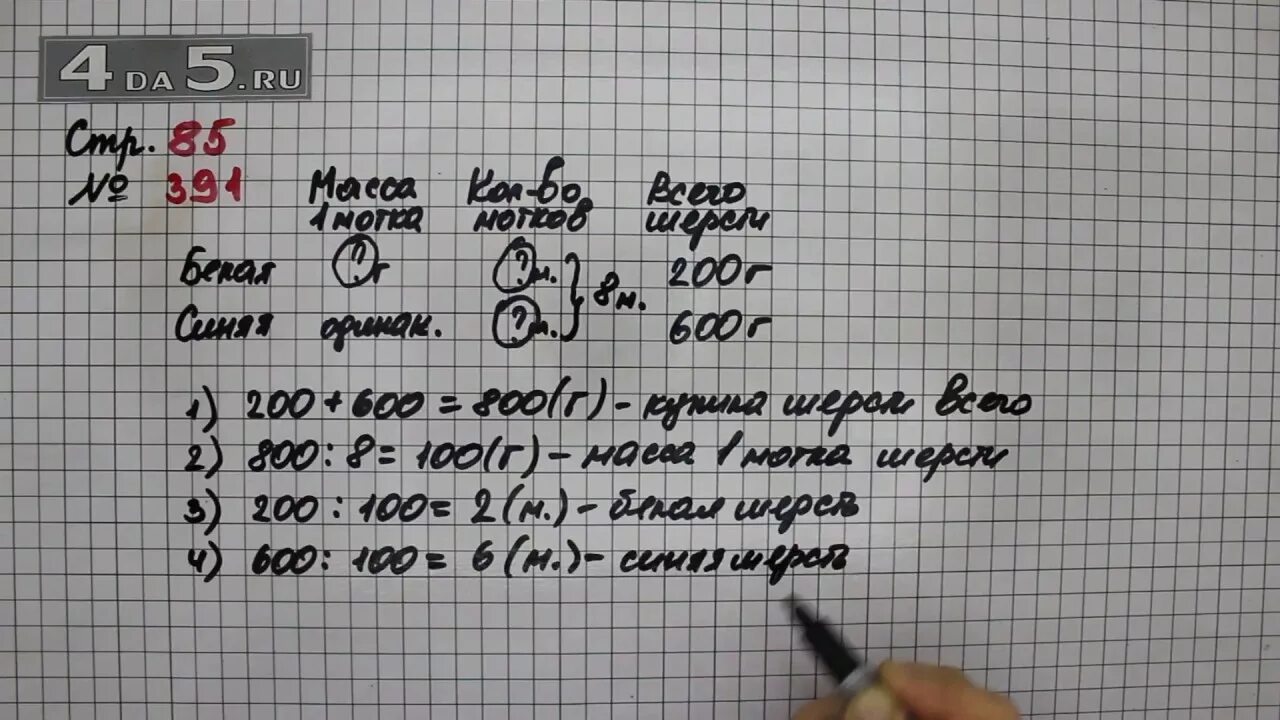 4DA5.RU
Стр. 85
№ 391 Масса Кол-во Всего
1 мотка мотков шерсти
Белая ? г ? м. 200 г
8 м.
Синяя одинак. ? м. 600 г
1) 200 + 600 = 800 (г) - купила шерсти всего
2) 800 : 8 = 100 (г) - масса 1 мотка шерсти
3) 200 : 100 = 2 (м.) - белая шерсть
4) 600 : 100 = 6 (м.) - синяя шерсть